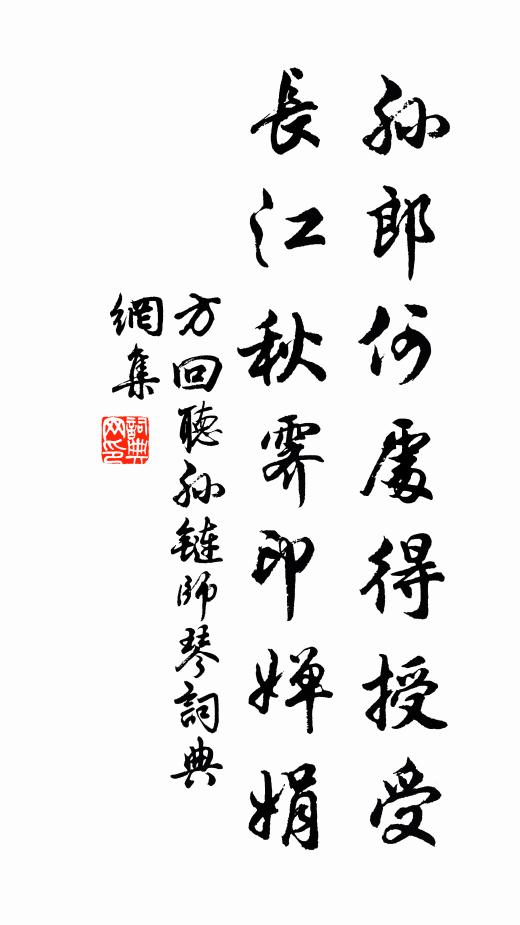 孫郎何處得授受
長江秋霽印嬋娟
方回聽孫鏈師琴詞典
網集
詞典
网印